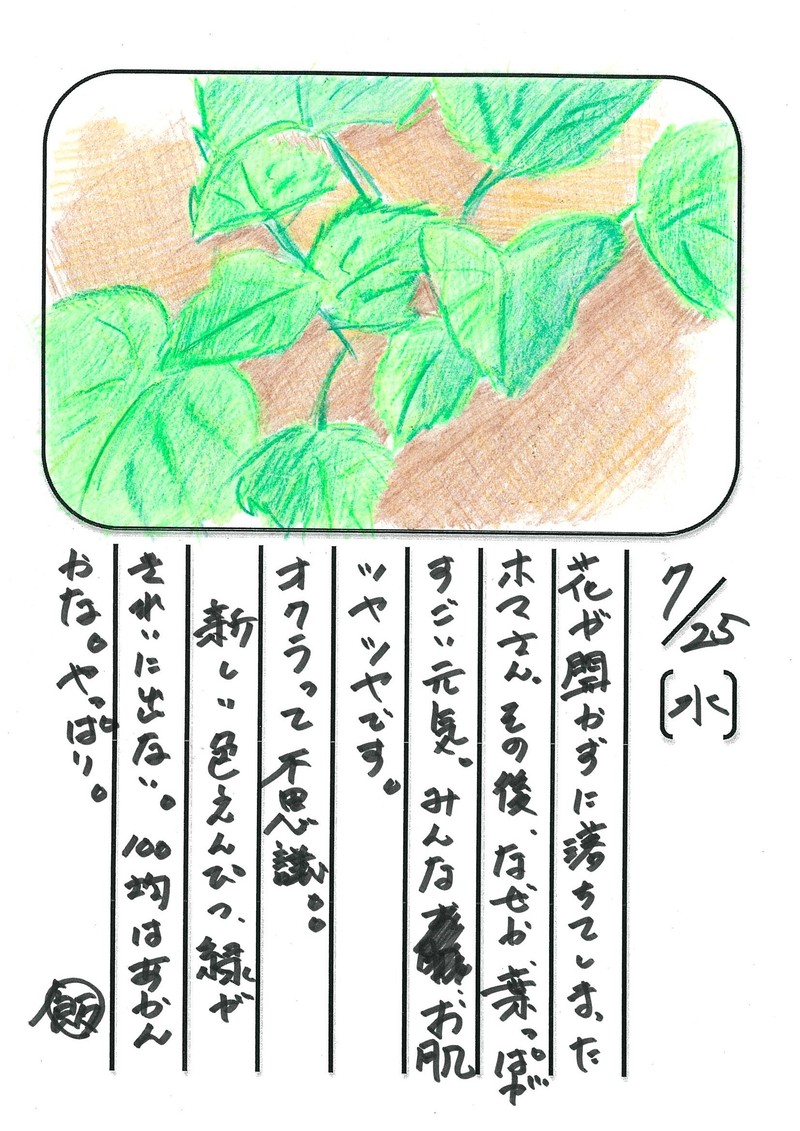 7/25 〔水〕
花が開かずに落ちてしまった
ホマさん。その後、なぜか、葉っぱが
すごい元気。みんな お肌
ツヤツヤです。
オクラって不思議。。
新しい色えんぴつ、緑が
きれいに出ない。100均はあかん
かな。やっぱり。
飯